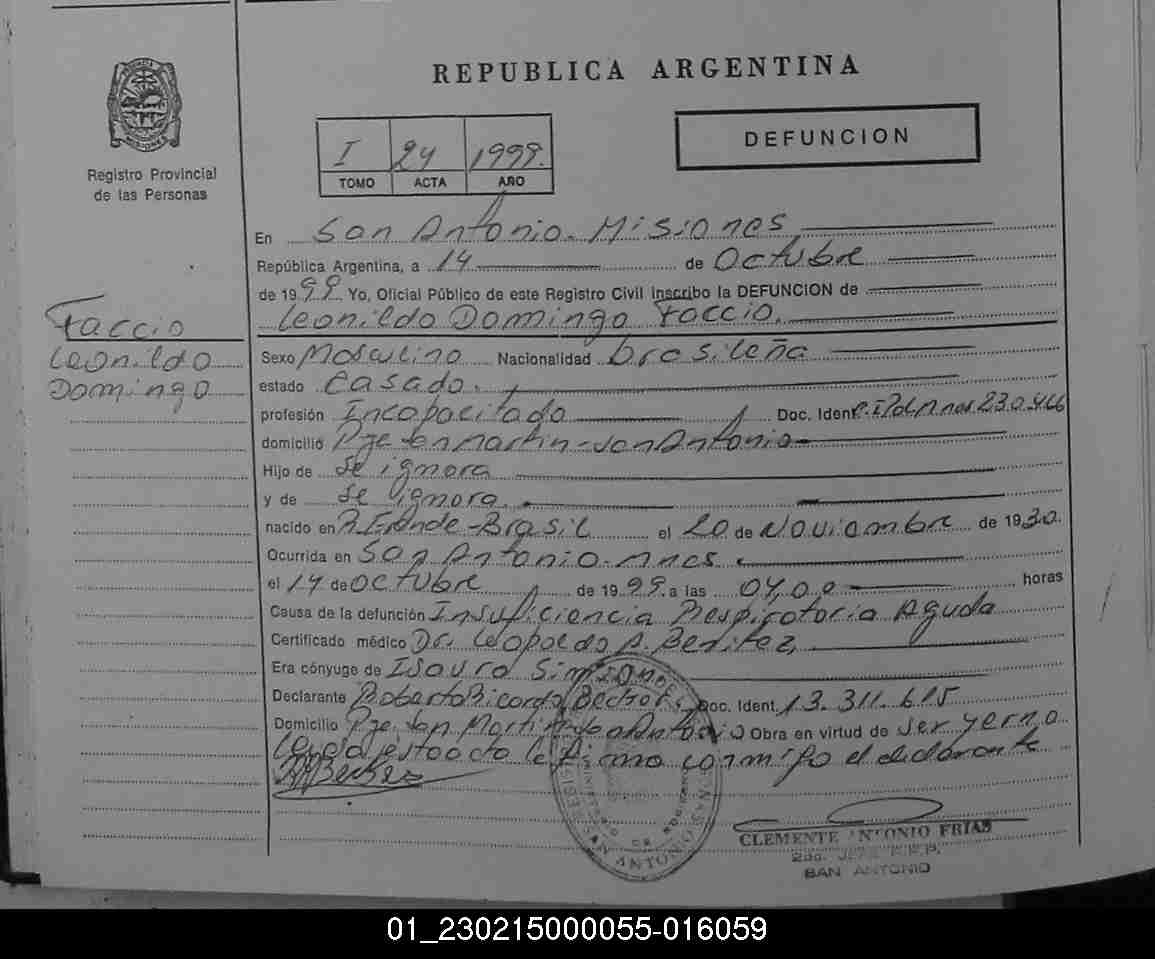 REPUBLICA ARGENTINA
PROVINCIA DE MISIONES
Registro Provincial
de las Personas
I 24 1999.
TOMO ACTA AÑO
DEFUNCION
Faccio
Leonildo
Domingo
En San Antonio. Misiones
República Argentina, a 14 de Octubre
de 1999. Yo, Oficial Público de este Registro Civil inscribo la DEFUNCION de
Leonildo Domingo Faccio.
Sexo Masculino Nacionalidad brasileña
estado Casado.
profesión Incapacitado Doc. Ident. 230.466
domicilio Pje San Martin-San Antonio
Hijo de se ignora
y de se ignora.
nacido en Brasil el 20 de Noviembre de 1930.
Ocurrida en San Antonio. Mnes.
el 14 de Octubre de 1999. a las 04,00 horas
Causa de la defunción Insuficiencia Respiratoria Aguda
Certificado médico Dr. Leopoldo A. Benitez,
Era cónyuge de Isaura
Declarante Roberto Ricardo Doc. Ident. 13.311.615
Domicilio Pje San Martin San Antonio Obra en virtud de ser yerno
Leyda esta acta la firma conmigo el declarante
CLEMENTE ANTONIO FRIAS
SAN ANTONIO
01_230215000055-016059